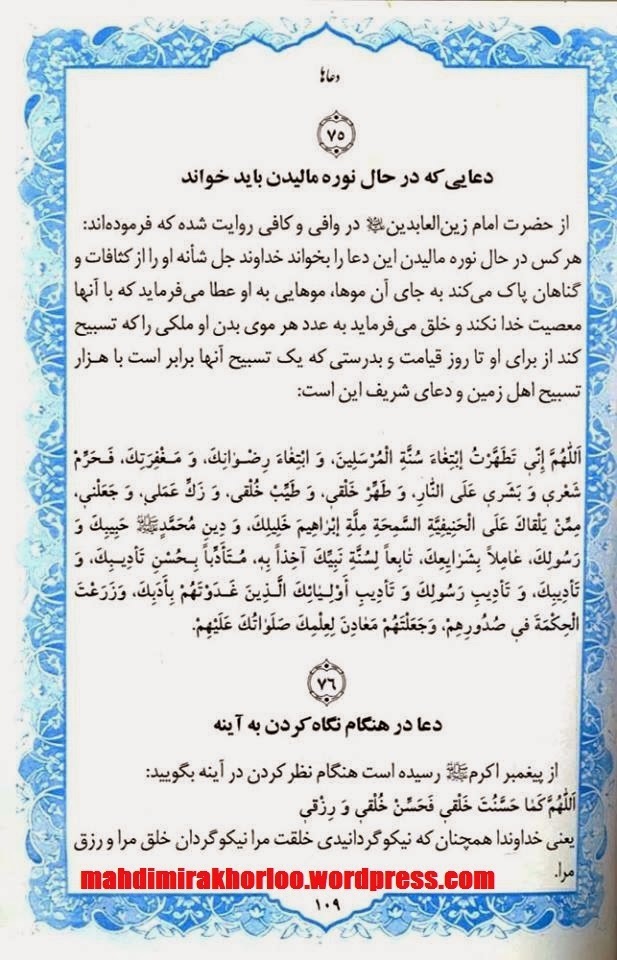 دعاها
۷۵
دعایی که در حال نوره مالیدن باید خواند
از حضرت امام زین‌العابدین در وافی و کافی روایت شده که فرموده‌اند:
هر کس در حال نوره مالیدن این دعا را بخواند خداوند جل شأنه او را از کثافات و
گناهان پاک می‌کند به جای آن موها، موهایی به او عطا می‌فرماید که با آنها
معصیت خدا نکند و خلق می‌فرماید به عدد هر موی بدن او ملکی را که تسبیح
کند از برای او تا روز قیامت و بدرستی که یک تسبیح آنها برابر است با هزار
تسبیح اهل زمین و دعای شریف این است:
اَللّٰهُمَّ إِنّي تَطَهَّرْتُ إِبْتِغٰاءَ سُنَّةِ الْمُرْسَلِينَ، وَ ابْتِغٰاءَ رِضْوٰانِكَ، وَ مَغْفِرَتِكَ، فَحَرِّمْ
شَعْري وَ بَشَري عَلَى النّٰارِ، وَ طَهِّرْ خَلْقي، وَ طَيِّبْ خُلْقي، وَ زَكِّ عَمَلي، وَ جَعَلْني،
مِمَّنْ يَلْقٰاكَ عَلَى الْحَنِيفِيَّةِ السَّمِحَةِ مِلَّةِ إِبْرٰاهِيمَ خَلِيلِكَ، وَ دِينِ مُحَمَّدٍ ﷺ حَبِيبِكَ وَ
رَسُولِكَ، عٰامِلاً بِشَرٰايِعِكَ، تٰابِعاً لِسُنَّةِ نَبِيِّكَ آخِذاً بِهِ، مُتَأَدِّباً بِحُسْنِ تَأْدِيبِكَ، وَ
تَأْدِيبِكَ، وَ تَأْدِيبِ رَسُولِكَ وَ تَأْدِيبِ أَوْلِيٰائِكَ الَّذِينَ غَدَوْتَهُمْ بِأَدَبِكَ، وَزَرَعْتَ
الْحِكْمَةَ في صُدُورِهِمْ، وَجَعَلْتَهُمْ مَعٰادِنَ لِعِلْمِكَ صَلَوٰاتُكَ عَلَيْهِمْ.
۷۶
دعا در هنگام نگاه کردن به آینه
از پیغمبر اکرم ﷺ رسیده است هنگام نظر کردن در آینه بگویید:
اَللّٰهُمَّ كَمٰا حَسَّنْتَ خَلْقي فَحَسِّنْ خُلْقي وَ رِزْقي
یعنی خداوندا همچنان که نیکو گردانیدی خلقت مرا نیکو گردان خلق مرا و رزق
مرا.
mahdimirakhorloo.wordpress.com
۱۰۹